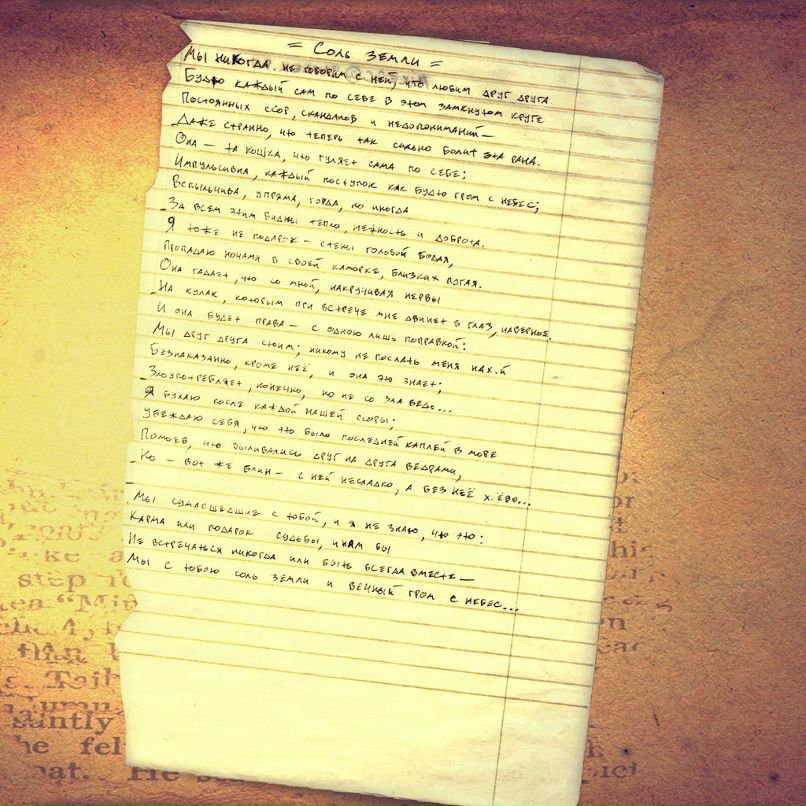 = Соль земли =
Мы никогда не говорим с ней, что любим друг друга.
Будто каждый сам по себе в этом замкнутом круге
Постоянных ссор, скандалов и недопониманий —
Даже странно, что теперь так сильно болит эта рана.
Она — та кошка, что гуляет сама по себе;
Импульсивна, каждый поступок как будто гром с небес;
Вспыльчива, упряма, горда, но иногда
За всем этим видны тепло, нежность и доброта.
Я тоже не подарок — стены головой бодая,
Пропадаю ночами в своей каморке, близких пугая.
Она гадает, что со мной, накручивая нервы
На кулак, которым при встрече мне двинет в глаз, наверное.
И она будет права — с одною лишь поправкой:
Мы друг друга стоим; никому не послать меня нах.й
Безнаказанно, кроме неё, и она это знает;
Злоупотребляет, конечно, но не со зла ведь...
Я бухаю после каждой нашей ссоры;
Убеждаю себя, что это было последней каплей в море
Помоев, что выливались друг на друга вёдрами,
Но — вот же блин — с ней несладко, а без неё х.ёво...
Мы сумасшедшие с тобой, и я не знаю, что это:
Карма или подарок судьбы, и нам бы
Не встречаться никогда или быть всегда вместе —
Мы с тобою соль земли и вечный гром с небес...
step
tea "Min
saintly
he fel